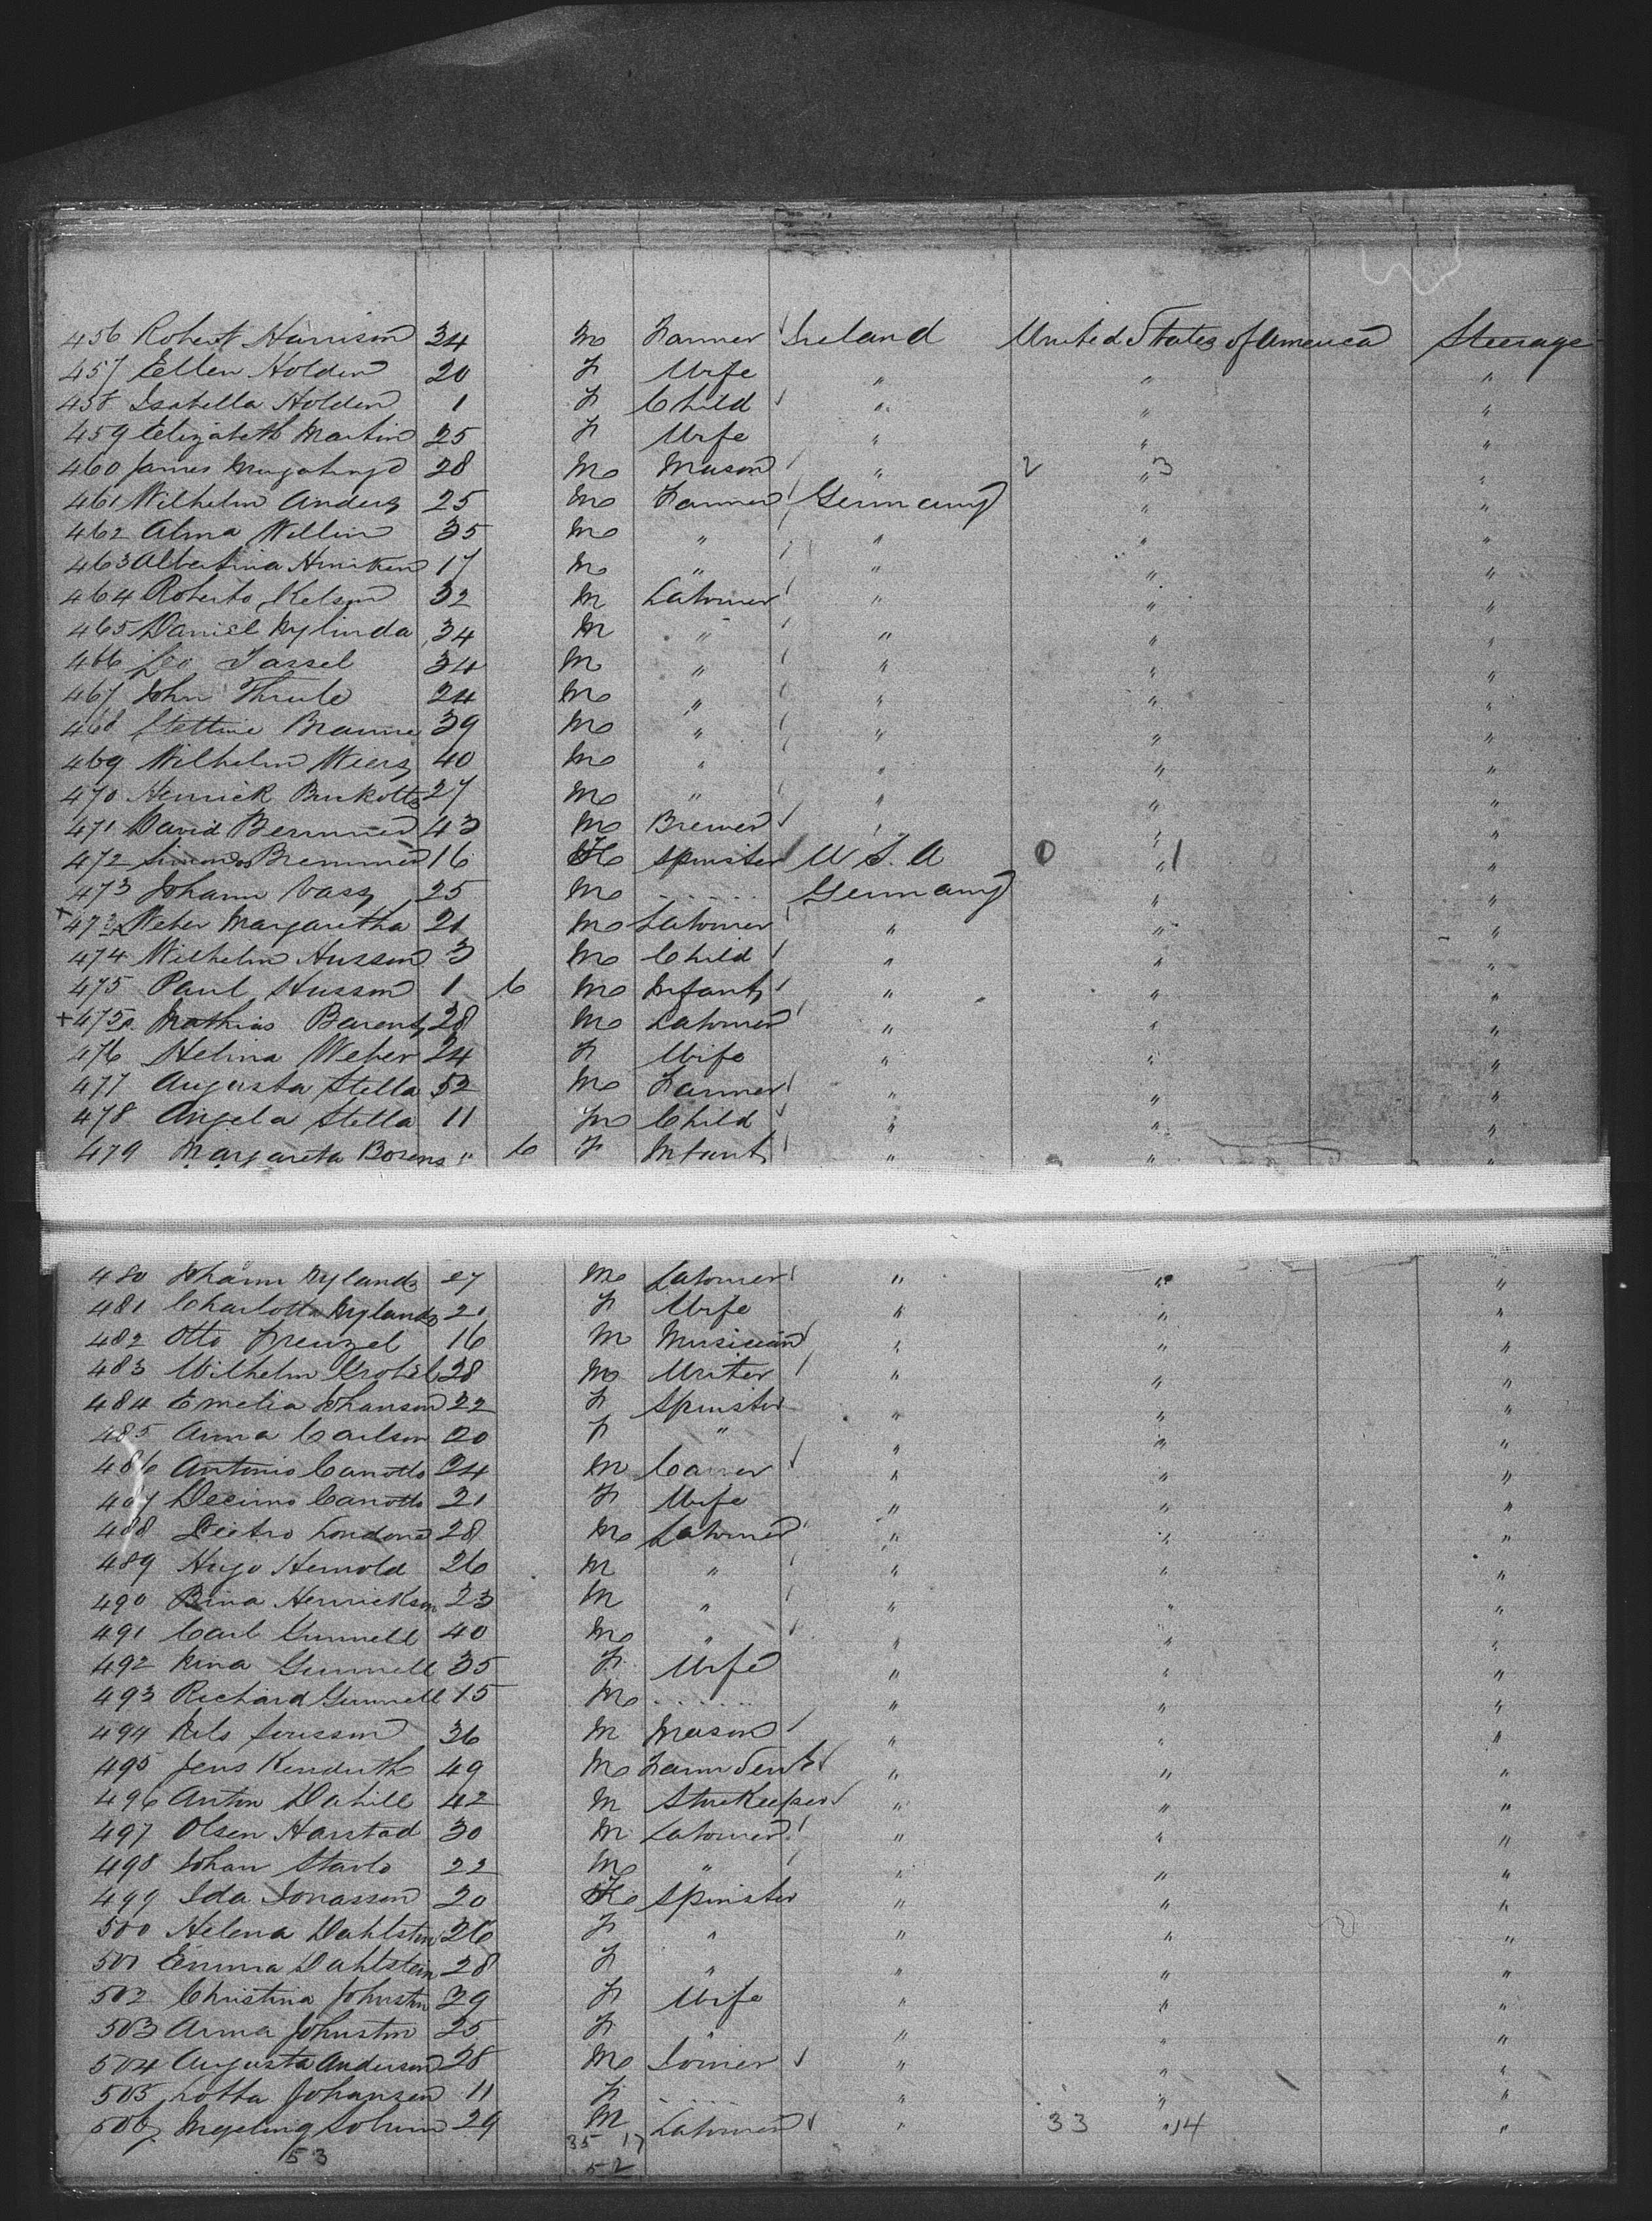 456 Robert Harrison 34 M Farmer Ireland United States of America Steerage
457 Ellen Holden 20 F Wife " " "
458 Isabella Holden 1 F Child " " "
459 Elizabeth Martin 25 F Wife " " "
460 James 28 M Mason " 2 " 3 "
461 Wilhelm Anders 25 M Farmer Germany " "
462 Alma Wellin 35 M " " " "
463 Albertina 17 M " " " "
464 Roberto Kelson 32 M Labourer " " "
465 Daniel Nylinda 34 M " " " "
466 Leo Tassel 34 M " " " "
467 John Thule 24 M " " " "
468 Stettine Braune 39 M " " " "
469 Wilhelm Wiers 40 M " " " "
470 Henrick 27 M " " " "
471 David Bremmer 43 M Brewer " " "
472 Bremmer 16 F Spinster U S A 0 " 1 "
473 Johann Vass 25 M ...... Germany " "
+ 473a Weber Margaretha 21 M Labourer " " "
474 Wilhelm Husson 3 M Child " " "
475 Paul Husson 1 6 M Infant " " "
+ 475a Mathias Barents 28 M Labourer " " "
476 Helina Weber 24 F Wife " " "
477 Augusta Stella 52 M Farmer " " "
478 Angela Stella 11 M Child " " "
479 Margareta Bosens " 6 F Infant " " "
480 Johann Nylands 27 M Labourer " " "
481 Charlotta Nylands 21 F Wife " " "
482 Otto Frenzel 16 M Musician " " "
483 Wilhelm Krobel 28 M Writer " " "
484 Emelia Johanson 22 F Spinster " " "
485 Anna Carlson 20 F " " " "
486 Antonio Canotto 24 M " " "
487 Decimo Canotto 21 F Wife " " "
488 Pietro Londono 28 M Labourer " " "
489 Hugo Hernold 26 M " " " "
490 Bina Henrickson 23 M " " " "
491 Carl Gunnell 40 M " " " "
492 Nina Gunnell 35 F Wife " " "
493 Richard Gunnell 15 M ...... " " "
494 Nils 36 M Mason " " "
495 Jens 49 M Farm Servt " " "
496 Anton Dahill 42 M Storekeeper " " "
497 Olsen Harstad 30 M Labourer " " "
498 Johan Starlo 22 M " " " "
499 Ida Jonasson 20 F Spinster " " "
500 Helena Dahlstein 26 F " " " "
501 Emma Dahlstein 28 F " " " "
502 Christina Johnston 29 F Wife " " "
503 Anna Johnston 25 F " " " "
504 Augusta Anderson 28 M Joiner " " "
505 Lotta Johansen 11 F ...... " " "
506 29 M Labourer " 33 " 14 "
53 35 17
52